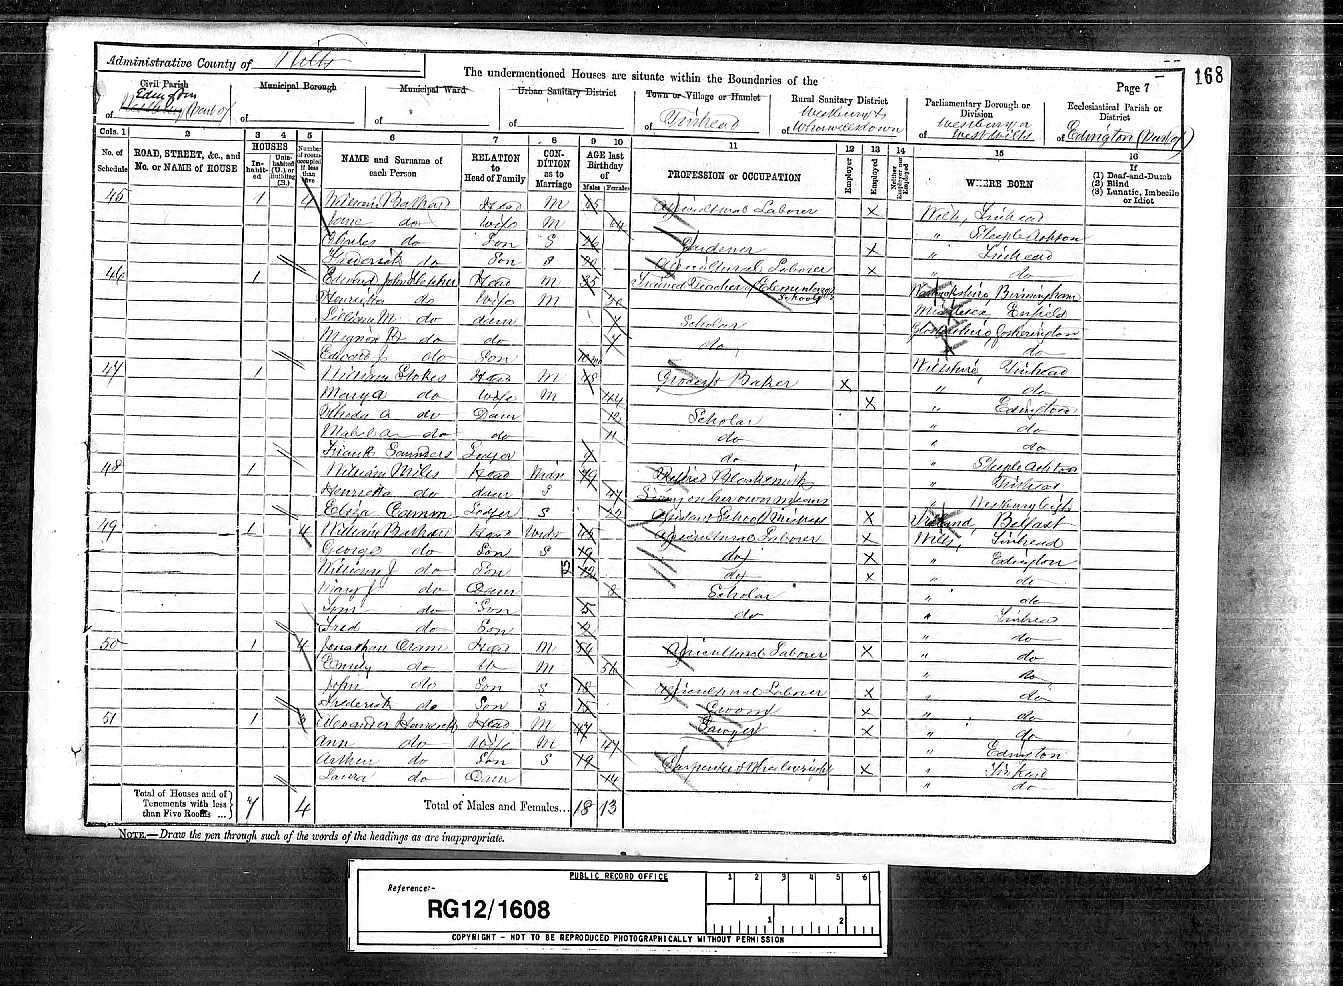 168
Administrative County of Wilts
The undermentioned Houses are situate within the Boundaries of the
Page 7
Civil Parish
of Edington (Part of)
Municipal Borough
of
Municipal Ward
of
Urban Sanitary District
of
Town or Village or Hamlet
of Tinhead
Rural Sanitary District
of Westbury & Whorwellsdown
Parliamentary Borough or Division
of Westbury or West Wilts
Ecclesiastical Parish or District
of Edington (Part of)
Cols. 1 2 3 4 5 6 7 8 9 10 11 12 13 14 15 16
No. of Schedule
ROAD, STREET, &c., and No. or NAME of HOUSE
HOUSES
In-habit-ed
Unin-habited (U.) or Building (B.)
Number of rooms occupied if less than five
NAME and Surname of each Person
RELATION to Head of Family
CON-DITION as to Marriage
AGE last Birthday of
Males Females
PROFESSION or OCCUPATION
Employer
Employed
Neither Employer nor Employed
WHERE BORN
If
(1) Deaf-and-Dumb
(2) Blind
(3) Lunatic, Imbecile or Idiot
45 1 4 William Head M 65 Agricultural Laborer X Wilts, Tinhead
Jane do Wife M 64 " Steeple Ashton
Charles do Son S Gardener X " Tinhead
Frederick do Son S Agricultural Laborer X " do
46 1 Edward John Head M 35 Trained Teacher of Elementary Schools Warwickshire, Birmingham
Henrietta do Wife M Middlesex, Enfield
Lillian M. do daur Scholar Gloucestershire,
do do do do
Edward J. do Son 10 mo Wiltshire, Tinhead
47 1 William Stokes Head M 48 Grocer & Baker X " do
Mary A do Wife M 44 X " Edington
do Daur 12 Scholar " do
Mabel A do do 11 do " do
Frank Saunders Lodger do " Steeple Ashton
48 1 William Miles Head Widr 79 Retired Blacksmith " Tinhead
Henrietta do daur S 47 Living on her own means "
Eliza Lodger S Assistant School Mistress X Ireland, Belfast
49 1 4 William Head Widr 45 Agricultural Laborer X Wilts, Tinhead
George do Son S 19 do X " Edington
William J do Son 12 do X " do
Mary J do Daur 8 Scholar " do
Tom do Son 5 do " Tinhead
Fred do Son 2 " do
50 1 4 Jonathan Oram Head M 54 Agricultural Laborer X " do
Emily do M 56 " do
John do Son S 18 Agricultural Laborer X " do
Frederick do Son S 15 Groom X " do
51 1 Alexander Head M 47 Sawyer X " do
Ann do Wife M 47 " Edington
Arthur do Son S 19 Carpenter & Wheelwright X " Tinhead
Laura do Daur 14 " do
Total of Houses and of Tenements with less than Five Rooms ... 7 4 Total of Males and Females... 18 13
NOTE.—Draw the pen through such of the words of the headings as are inappropriate.
PUBLIC RECORD OFFICE
Reference:-
RG12/1608
1 2 3 4 5 6
1 2
COPYRIGHT - NOT TO BE REPRODUCED PHOTOGRAPHICALLY WITHOUT PERMISSION